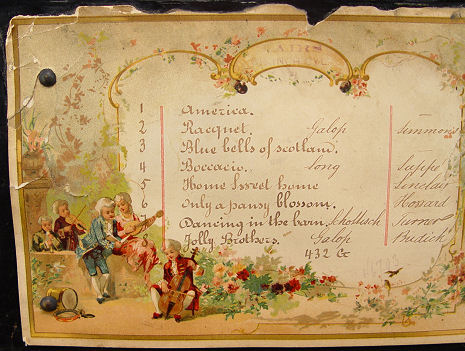 AIRS
1 America.
2 Racquet. Galop Simmons
3 Blue bells of scotland.
4 Boccacio. Song Suppe
5 Home Sweet home Sinclair
6 Only a pansy blossom. Howard
7 Dancing in the barn. Schottisch Turner
Jolly Brothers. Galop Budick
432 Ct